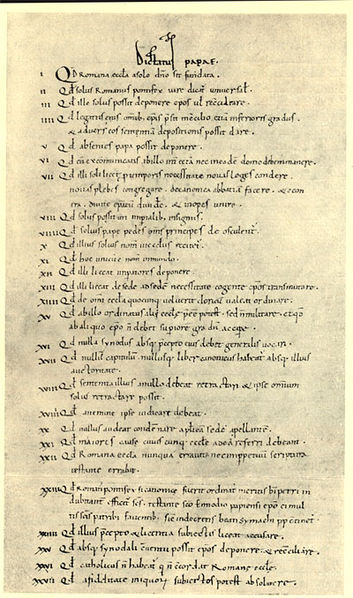 Dictatus papae.
i Qd Romana eccla a solo dno sit fundata.
ii Qd solus Romanus pontifex iure dicat universal.
iii Qd ille solus possit deponere epos vl reconciliare.
iiii Qd legatus eius omib; epis psit in concilio etia inferioris gradus.
& adversus eos sententia depositionis possit dare.
v Qd absentes papa possit deponere.
vi Qd cu excommunicatis ab illo int cetera nec in eade domo debem manere.
vii Qd illi soli licet p temporis necessitate novas leges condere.
novas plebes congregare. de canonica abbatia facere. & e contra.
divite epatu divide. & inopes unire.
viii Qd solus possit uti imperialib; insigniis.
viiii Qd solius pape pedes oms principes deosculent.
x Qd illius solius nom in ecclesiis recitet.
xi Qd hoc unicu e nom in mundo.
xii Qd illi liceat impatores deponere.
xiii Qd illi liceat de sede ad sede necessitate cogente epos transmutare.
xiiii Qd de omi eccla quocunq; voluerit clericu valeat ordinare.
xv Qd ab illo ordinatus alii eccle pee potest. sed n militare. et qd
ab aliquo epo n debet superiore gradu accipe.
xvi Qd nulla synodus absq; pcepto eius debet generalis vocari.
xvii Qd nullu capitulu. nullusq; liber canonicus habeat absq; illius
auctoritate.
xviii Qd sententia illius a nullo debeat retractari & ipse omnium
solus retractare possit.
xviiii Qd a nemine ipse iudicari debeat.
xx Qd nullus audeat condemnare aplica sede apellante.
xxi Qd maiores cause cuiuscunq; eccle ad ea referri debeant.
xxii Qd Romana eccla nunqua erravit nec imppetuu scriptura
testante errabit.
xxiii Qd Romanus pontifex si canonice fuerit ordinatus meritis b. petri in
dubitant efficit scs. testante sco Ennodio papiensi epo ei multis
scis patrib; faventib; sic in decretis beati symachi pp continet.
xxiiii Qd illius pcepto & licentia subiectis liceat accusare.
xxv Qd absq; synodali conventu possit epos deponere & reconciliare.
xxvi Qd catholicus n habeat q n concordat Romane eccle.
xxvii Qd a fidelitate iniquoru subiectos potest absolvere.